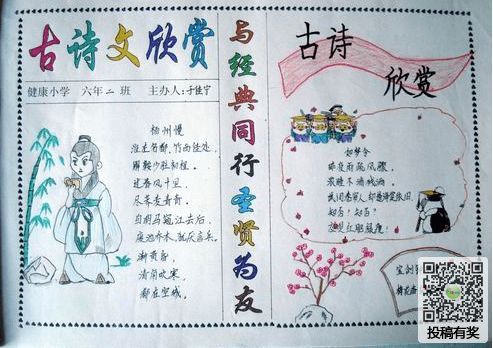 古诗文欣赏
健康小学 六年二班 主办人:于佳宁
扬州慢
淮左名都,竹西佳处,
解鞍少驻初程。
过春风十里,
尽荠麦青青。
自胡马窥江去后,
废池乔木,犹厌言兵。
渐黄昏,
清角吹寒
都在空城。
与经典同行圣贤为友
古诗
欣赏
如梦令
昨夜雨疏风骤,
浓睡不消残酒。
试问卷帘人,却道海棠依旧。
知否?知否?
应是红肥绿瘦!
宝剑
梅花香
投稿有奖